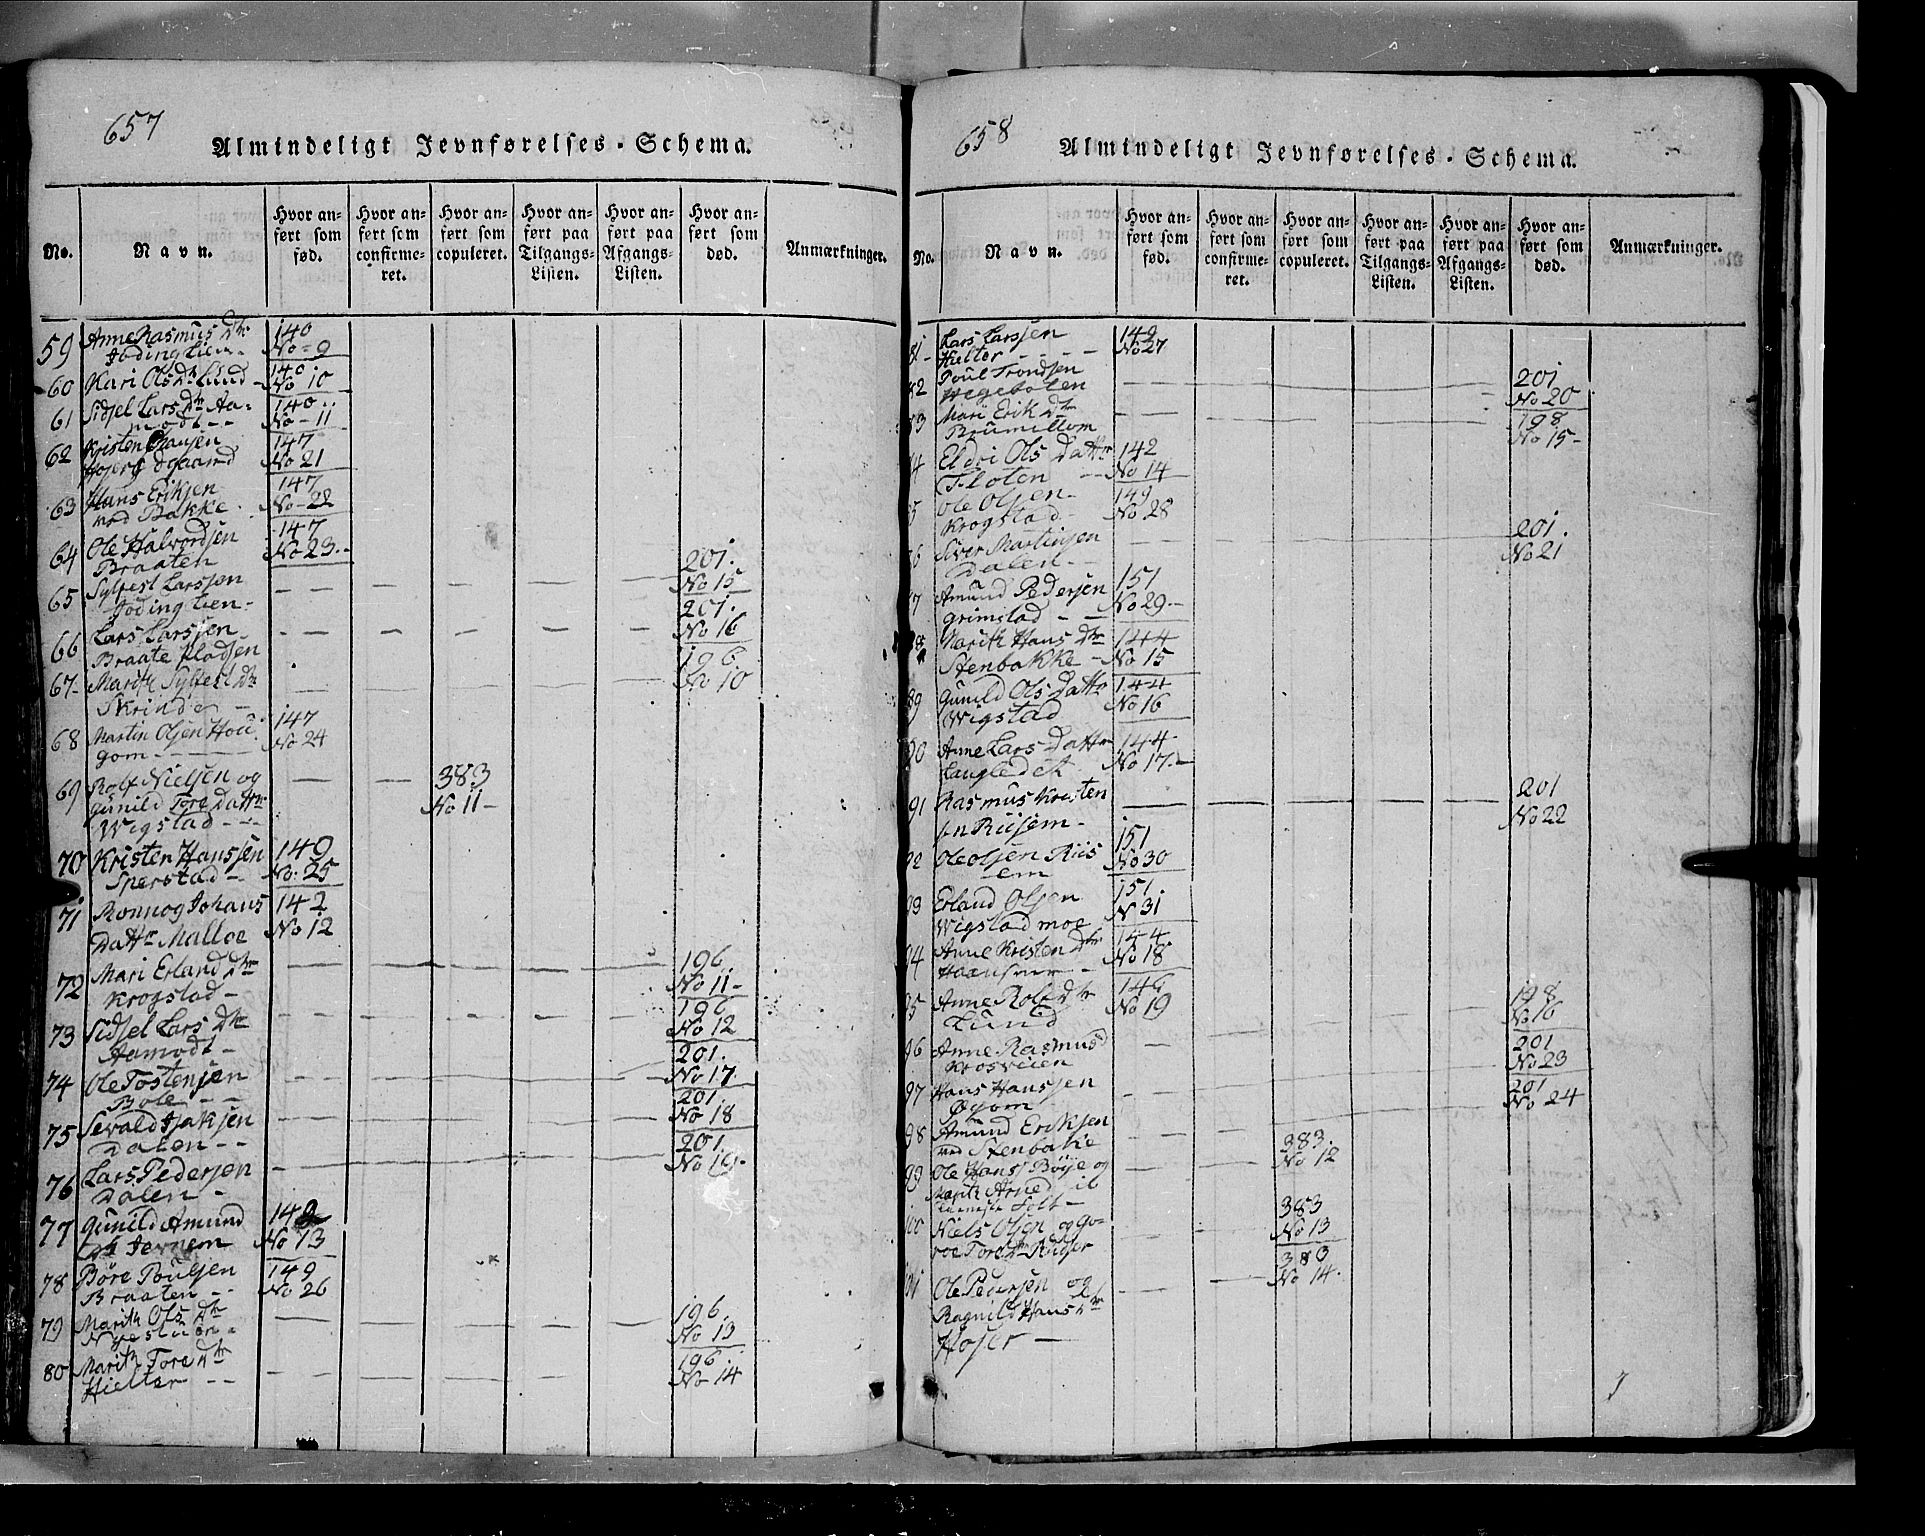 657
Almindeligt Jevnførelses-Schema.
No. Navn. Hvor anført som fød. Hvor anført som confirmeret. Hvor anført som copuleret. Hvor anført paa Tilgangs-Listen. Hvor anført paa Afgangs-Listen. Hvor anført som død. Anmærkninger.
59 Anne Rasmus Dtr 140
No = 9
60 Kari Ols Dtr Lund 140
No 10
61 Sidsel Lars Dtr Aa= 140
modt -- No - 11
62 Kristen Hansen 147
No 21
63 Hans Eriksen 147
ved Bakke No - 22
64 Ole Halvordsen 147
Braaten No 23.-
65 Sylfest Larssen 201.
No 15
66 Lars Larssen 201.
Braate pladsen No 16
67 Marith Sylfest Dtr 196
Skrinde No 10
68 Martin Olsen Hou 147
gom No 24
69 Rolf Nielsen og 383
Gunild Tore Dattr No 11 -
Wigstad - - -
70 Kristen Hanssen 149
Sperstad - No. 25
71 Ronnog Johans 142
Dattr Malloe No 12
72 Mari Erland Dtr 196
Krogstad - No 11 -
73 Sidsel Lars Dtr 196
Aamodt - No 12
74 Ole Tostensen 201.
Bole - - No 17.
75 Sevald Isaksen 201
Dalen - - No 18
76 Lars Pedersen 201.
Dalen - No 19.
77 Gunild Amund 142
No 13
78 Børe Poulsen 149
Braaten - - No 26
79 Marith Ols Dtr 196
No 13
80 Marith Tore Dtr 196
Hielter - - No 14
658
Almindeligt Jevnførelses-Schema.
No. Navn. Hvor anført som fød. Hvor anført som confirmeret. Hvor anført som copuleret. Hvor anført paa Tilgangs-Listen. Hvor anført paa Afgangs-Listen. Hvor anført som død. Anmærkninger.
81 Lars Larssen 149
Hielter - - - - No 27
82 Poul Trondsen 201
No 20
83 Mari Erik Dtr 198
No 15 -
84 Eldri Ols Dattr 142
Floten - - No 14
85 Ole Olsen 149
Krogstad - No 28
86 Siver Martinsen 201.
Dalen - No 21
87 Amund Pedersen 151
Grimstad - - No 29 -
88 Marith Hans Dtr 144
Stenbakke - No 15
89 Gunild Ols Dattr 144
Wigstad No 16
90 Anne Lars Dattr 144
No 17. -
91 Rasmus Kristen 201
sn Riisem - No 22
92 Ole Olsen Riis 151
em No 30
93 Erland Olsen 151.
Wigstad moe N 31
94 Anne Kristen Dtr 144
No 18
95 Anne Rolf Dtr 146
Lund No 19
198
No 16
96 Anne Rasmus d 201
No 23
97 Hans Hanssen 201
No 24
98 Amund Eriksen 383.
ved Stenbakke No 12
99 Ole Hans Böye og
Marith Arned
383
100 Niels Olsen og Go= No 13
roe Tore Dtr
383
101 Ole Pedersen og No 14.
Ragnild Hans Dtr
Hojer -